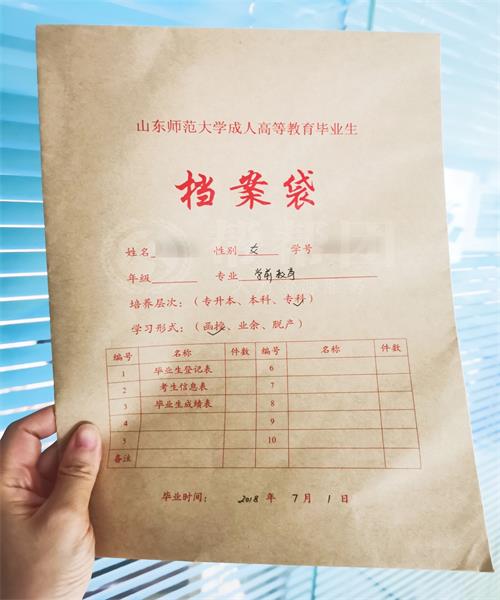 山东师范大学成人高等教育毕业生
档案袋
姓名 性别 女 学号
年级 专业 学前教育
培养层次：（专升本、本科、专科）
学习形式：（函授、业余、脱产）
编号 名称 件数 编号 名称 件数
1 毕业生登记表 6
2 考生信息表 7
3 毕业生成绩表 8
4 9
5 10
备注
毕业时间： 2018 年 7 月 1 日